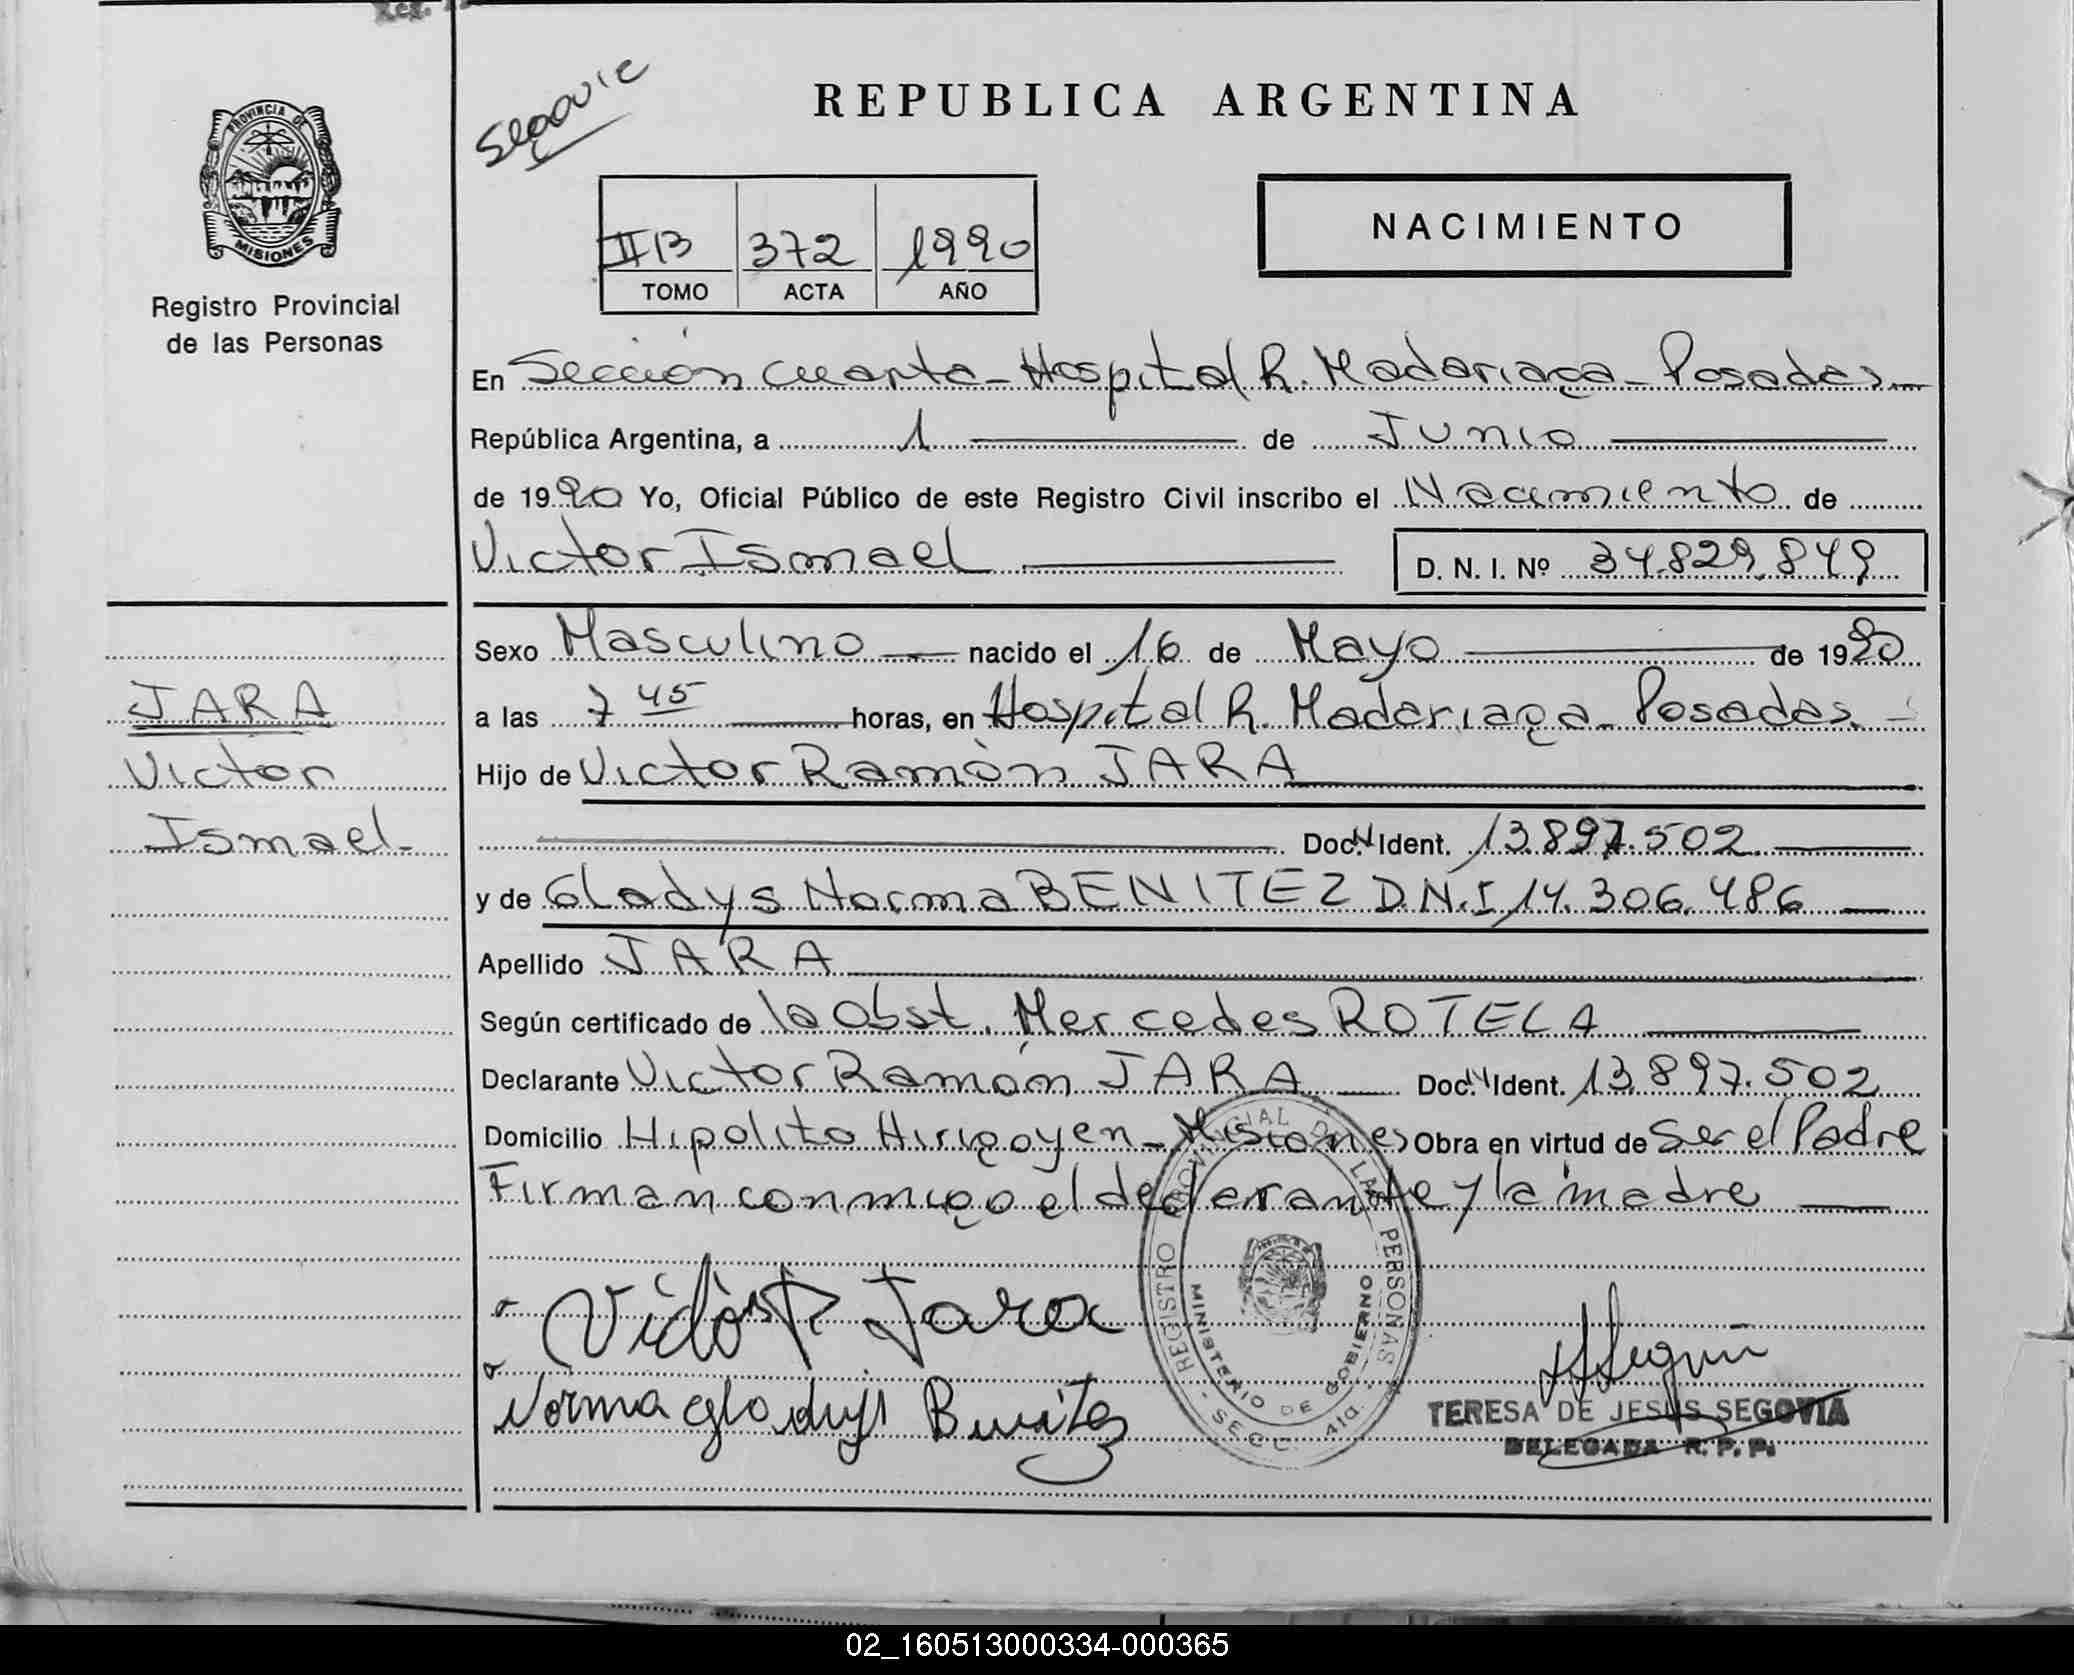 Segovia
REPUBLICA ARGENTINA
PROVINCIA DE
MISIONES
Registro Provincial
de las Personas
NACIMIENTO
II B 372 1990
TOMO ACTA AÑO
En Sección cuarta - Hospital R. Madariaga - Posadas
República Argentina, a 1 de Junio
de 1990 Yo, Oficial Público de este Registro Civil inscribo el Nacimiento de
Victor Ismael D. N. I. Nº 34.829.849
Sexo Masculino nacido el 16 de Mayo de 1990
JARA
Victor
Ismael-
a las 7 45 horas, en Hospital R. Madariaga - Posadas. -
Hijo de Victor Ramón JARA
Doc. N Ident. 13.897.502
y de Gladys Norma BENITEZ D.N.I 14.306.486
Apellido JARA
Según certificado de la Obst. Mercedes ROTELA
Declarante Victor Ramón JARA Doc. N Ident. 13.897.502
Domicilio Hipolito Hirigoyen - Misiones Obra en virtud de Ser el Padre
Firman conmigo el declarante y la madre
REGISTRO PROVINCIAL DE LAS PERSONAS
MINISTERIO DE GOBIERNO
- SECC. 4ta. -
Victor R Jara
Norma Gladys Benitez
TERESA DE JESUS SEGOVIA
DELEGADA R. P. P.
02_160513000334-000365